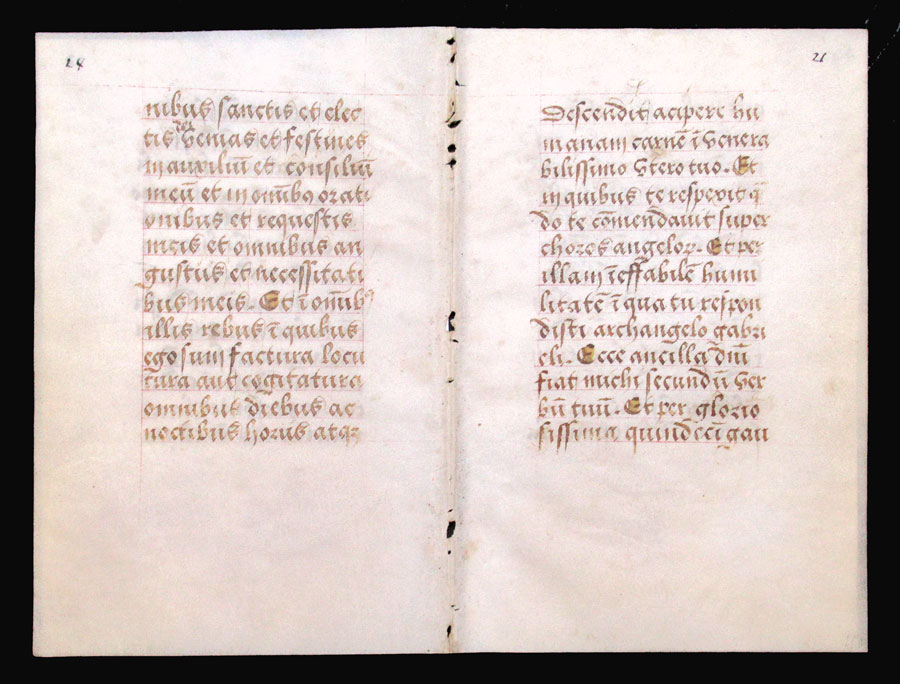 28
nibus sanctis et elec
tis Venias et festines
in auxiliū et consiliū
meū et in omībꝰ orati
onibus et requestis
meis et omnibus an
gustiis et necessitati
bus meis. Et ī omībꝰ
illis rebus ī quibus
ego sum factura locu
tura aut cogitatura
omnibus diebus ac
noctibus horis atqꝫ
21
Descendit acipere hu
manam carnē ī venera
bilissimo vtero tuo. Et
in quibus te respexit q̄
do te cōmendauit super
choros angeloꝝ. Et per
illam īeffabilē humi
litatē ī qua tu respon
disti archangelo gabri
eli. Ecce ancilla dn̄i
fiat michi secundū ver
bū tuū. Et per glorio
sissima quindecī gau